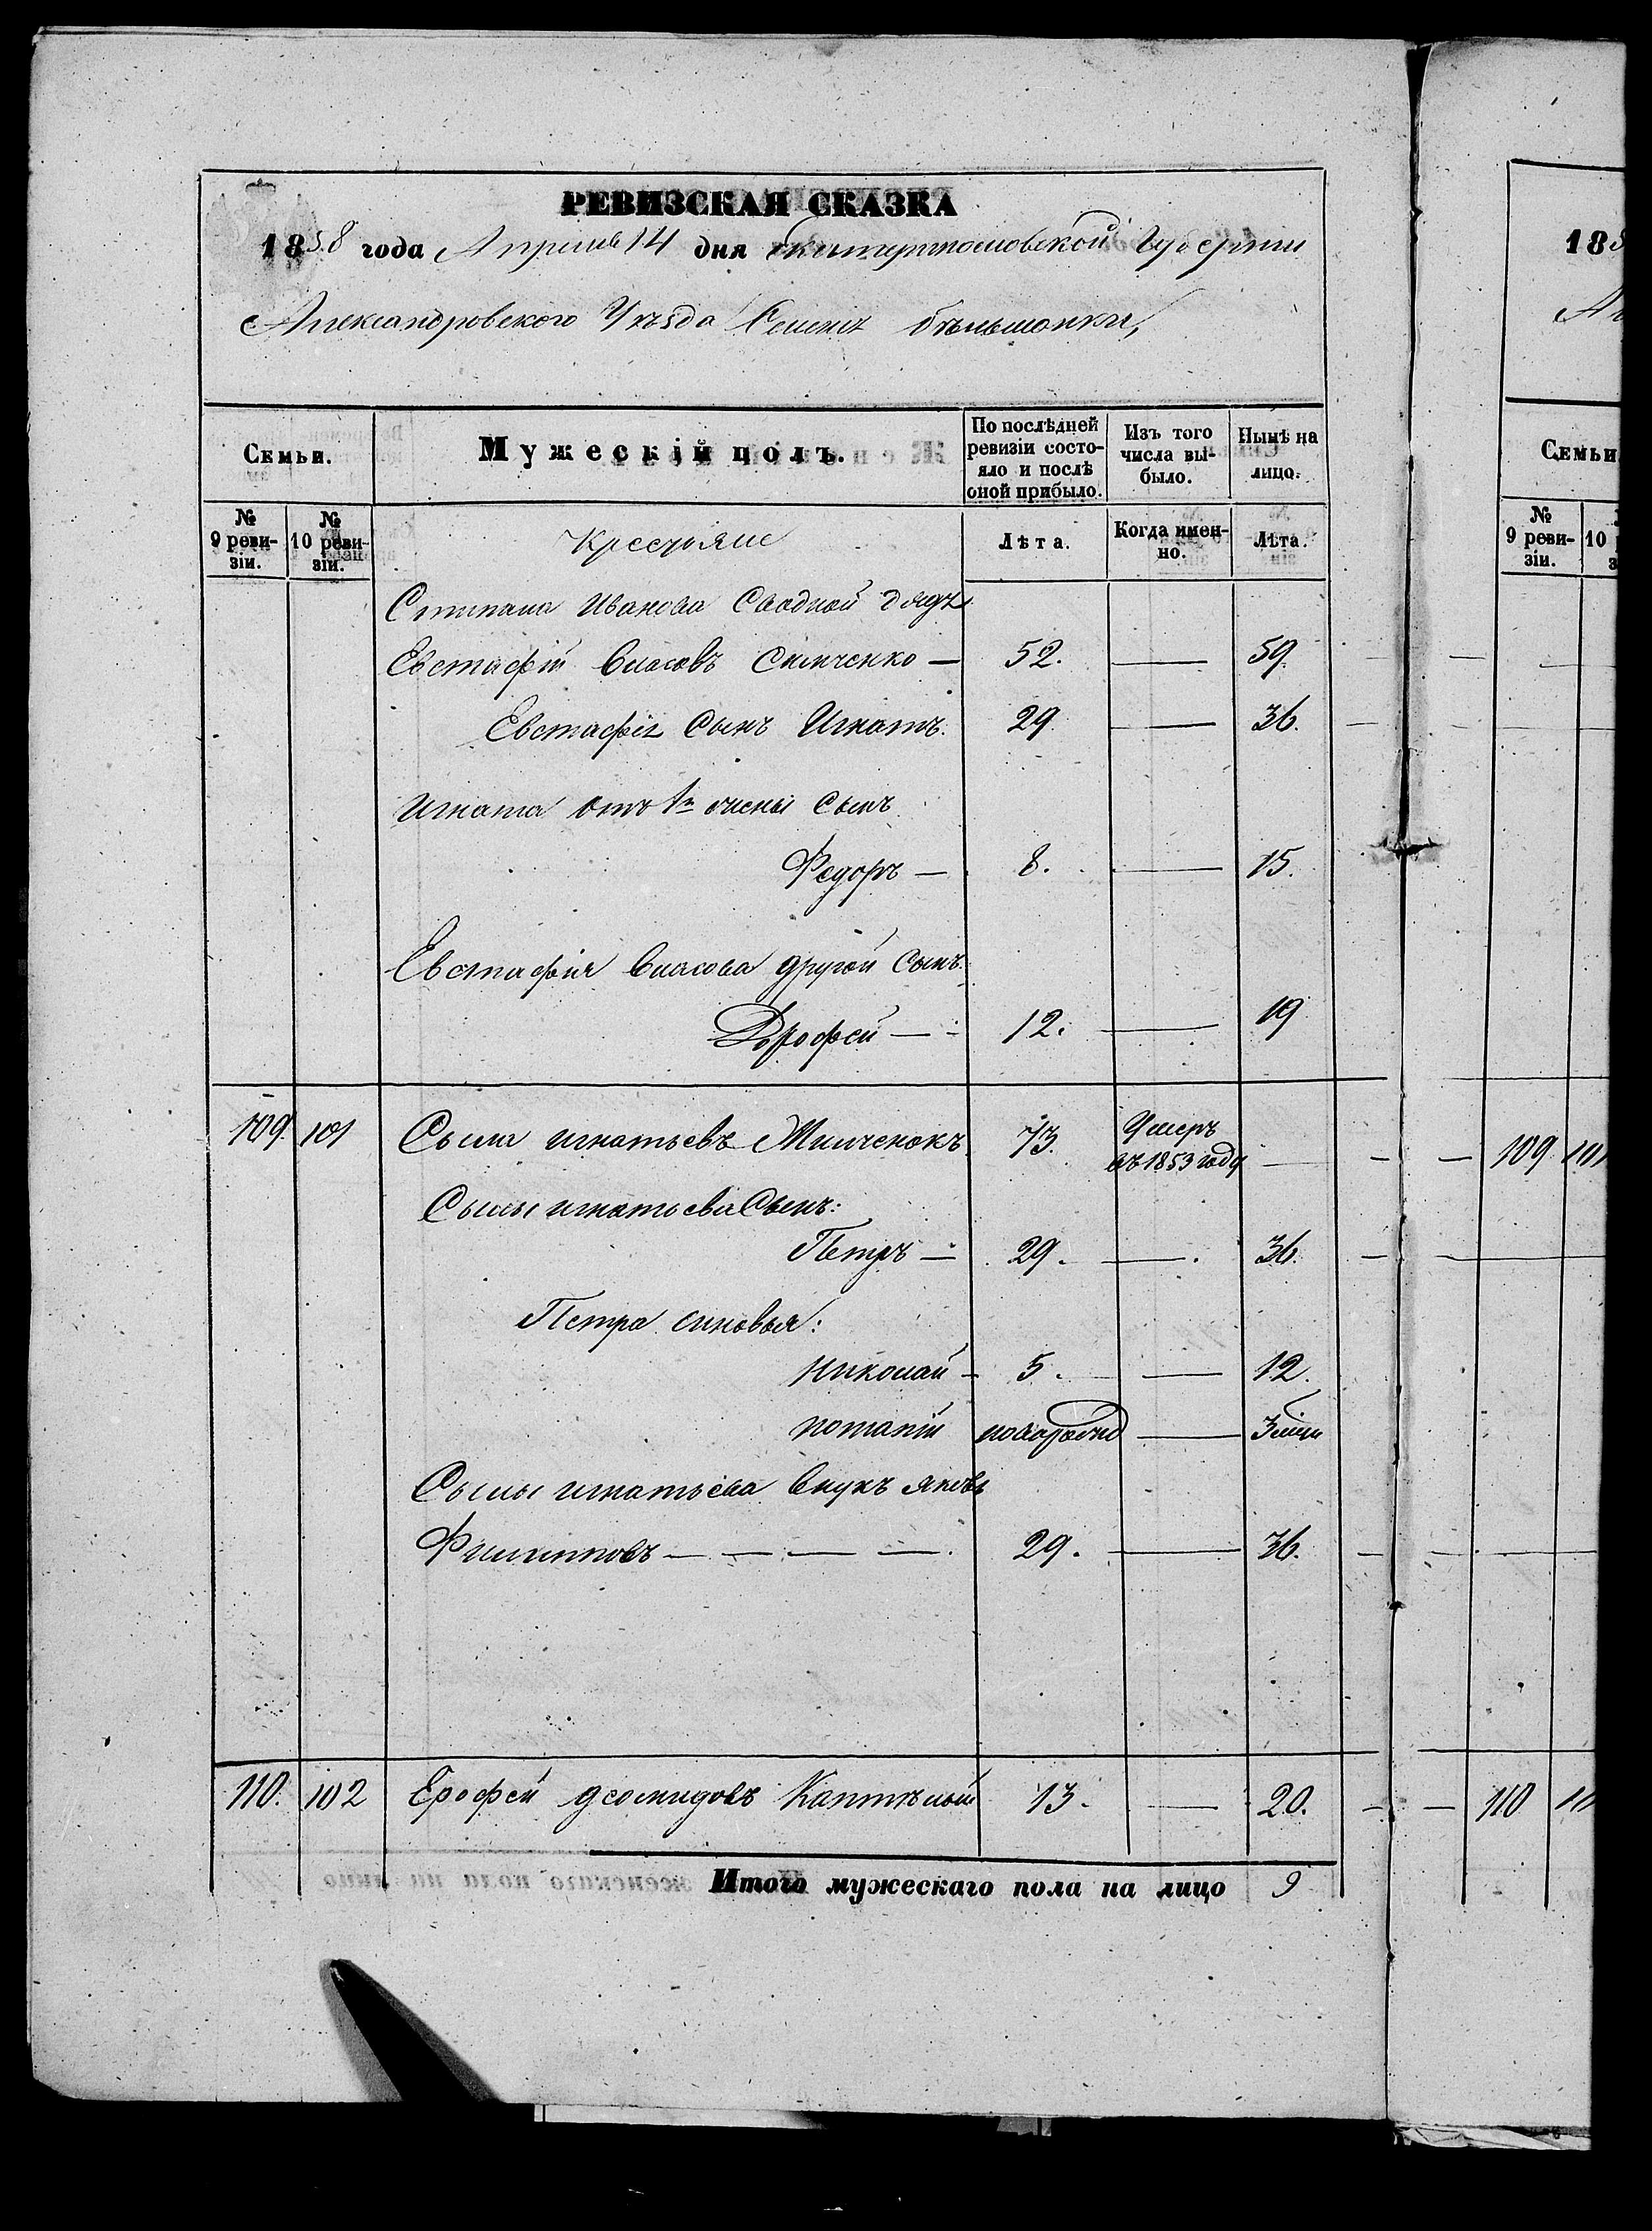 РЕВИЗСКАЯ СКАЗКА
1858 года Апреля 14 дня Екатеринославской Губернии
Александровского Уѣзда Селенія Бѣльманки,
Семьи.
Мужескій полъ.
По послѣдней ревизіи состояло и послѣ оной прибыло.
Изъ того числа выбыло.
Нынѣ на лицо.
№ 9 ревизіи.
№ 10 ревизіи.
Крестьяне
Лѣта.
Когда именно.
Лѣта.
Степана Иванова Сводной дядя
Евстафій Власовъ — 52. — 59.
Евстафія Сынъ Игнатъ. 29. — 36.
Игната отъ 1й жены Сынъ
Федоръ — 8. — 15.
Евстафія Власова другой Сынъ:
Дорофей — 12. — 19
109. 101 Сыла Игнатьевъ 73. Умеръ въ 1853 году —
Сылы Игнатьева Сынъ:
Петръ — 29. — 36.
Петра синовья:
Николай — 5. — 12.
Потапій новорожд — 3
Сылы Игнатьева Внукъ Яковъ
Филиповъ — — — — 29. — 36.
110. 102 Ерофей Деомидовъ 13. — 20.
Итого мужескаго пола на лицо 9
185
Семьи
№ 9 ревизіи.
10
109 101
110